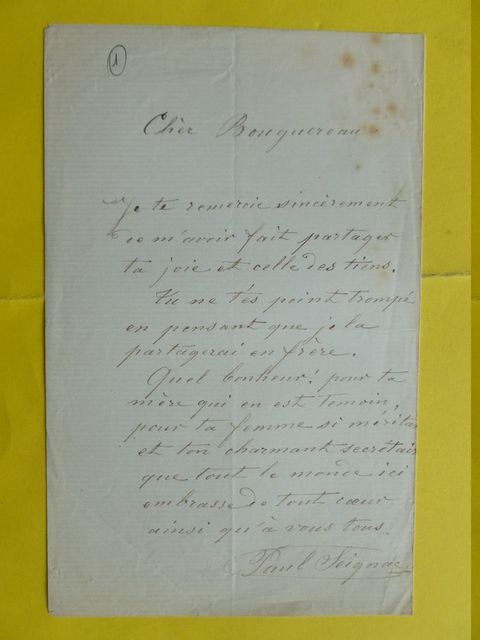 1
Cher Bouguereau
Je te remercie sincèrement
de m'avoir fait partager
ta joie et celle des tiens.
Tu ne t'és point trompé
en pensant que je la
partagerai en frère.
Quel bonheur! pour ta
mère qui en est temoin,
pour ta femme si méritan
et ton charmant secrétair
que tout le monde ici
embrasse de tout cœur
ainsi qu'à vous tous.
Paul Seignac